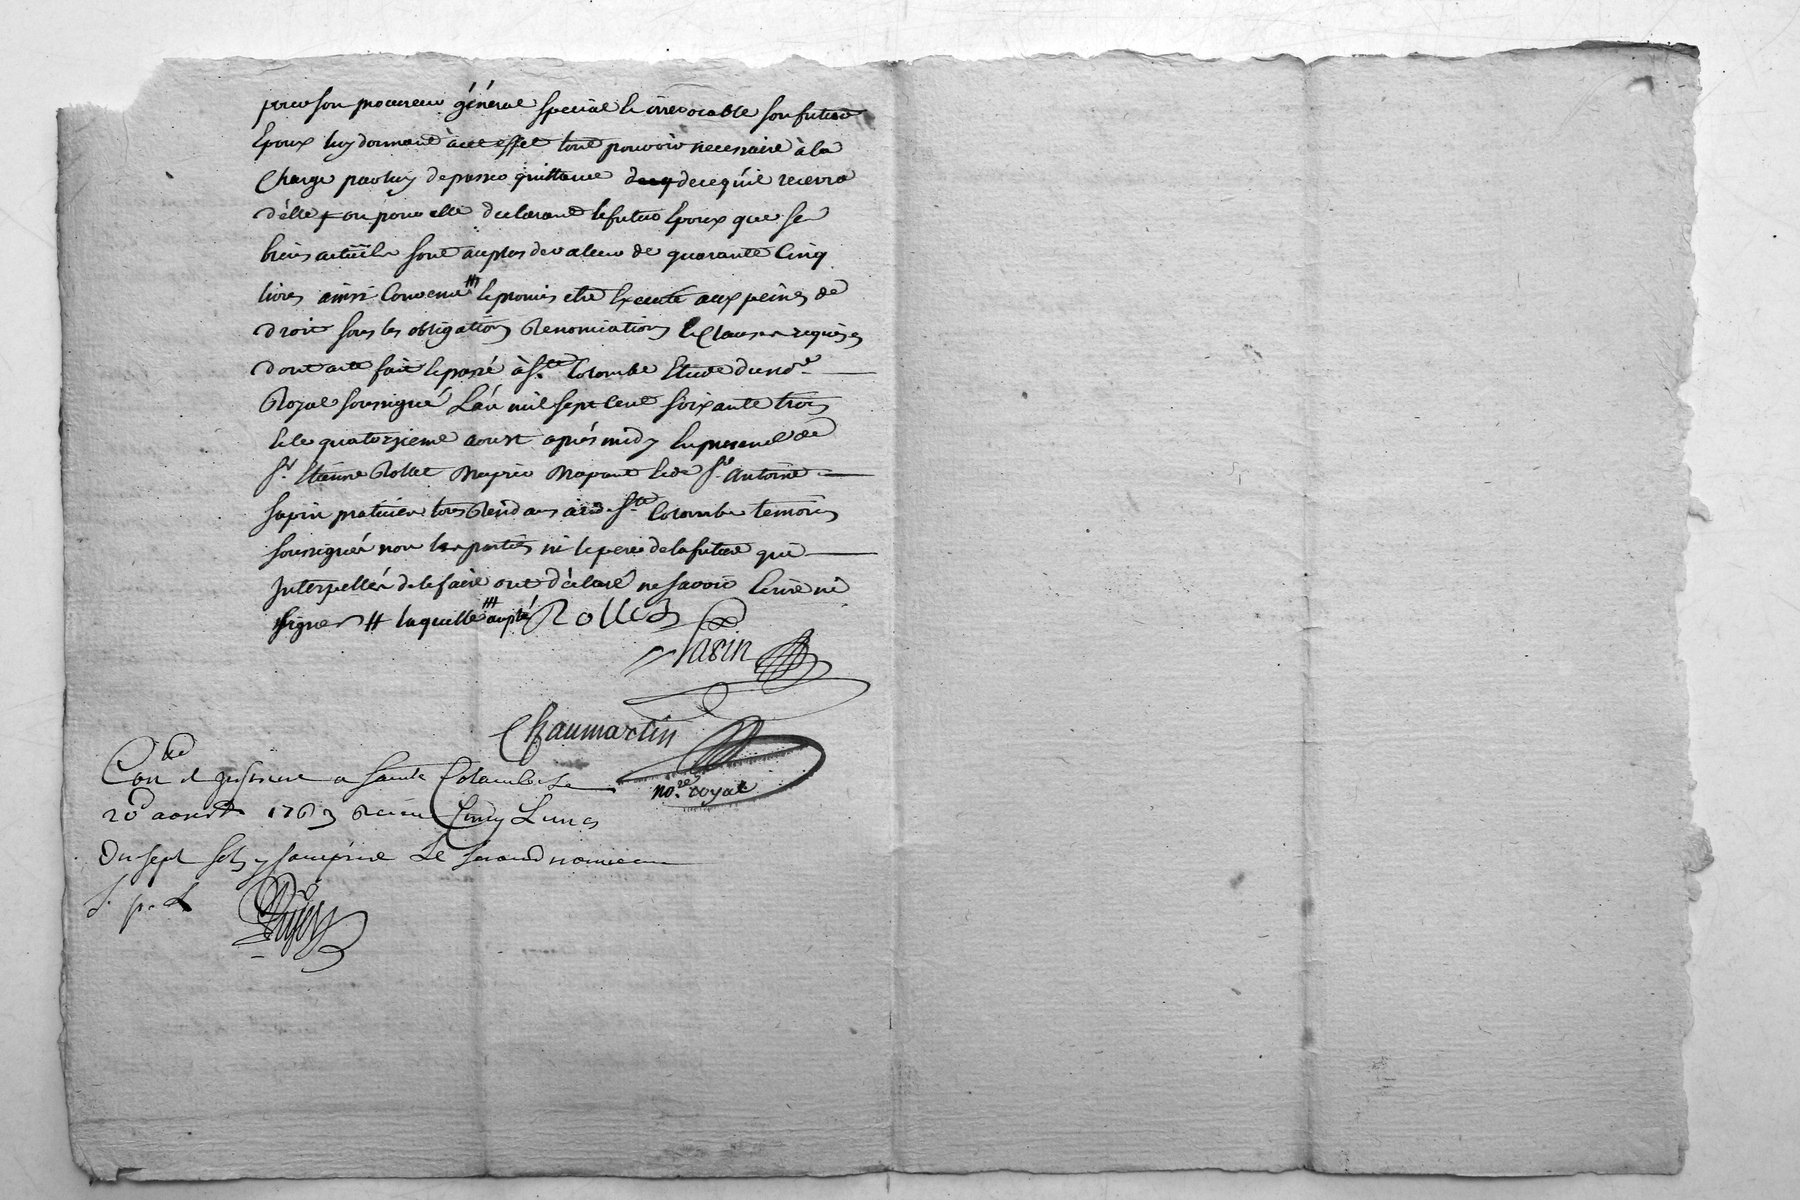 pour son procureur général special & irrevocable son futur
Epoux luy donnant à cet effet tout pouvoir necessaire à la
Charge par luy de passer quittance de ce qu'il recevra
d'elle & ou pour elle declarant le futur Epoux que se
biens actüels sont au plus de valeur de quarante Cinq
livres ainsi Convenu # & promis etre Executé aux peines de
droit sous les obligations Renonciations & Clauses requises
dont acte fait & passé à Ste Colombe Etude du nore
Royal soussigné L'an mil sept Cent soixante trois
& le quatorzieme aoust après midy En presence de
Sr. Etienne Rollet & de Sr Antoine
Sapin praticien tous Residans aud. Ste Colombe temoins
soussignés non les parties ni le pere de la future qui
Interpellés de le faire ont déclaré ne savoir Ecrire ni
signer # laquelle
Rollet
Sapin
Chaumartin
no.re royal
Con.lé a Sainte Colombe Le
20 aoust 1763 Reçu Cinq Livres
Sept Sols y compris Le Second nouveau
S. p. L